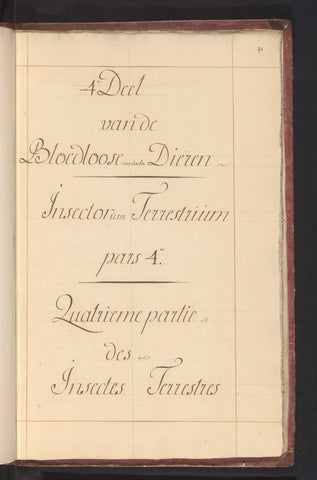 4e Deel
van de
Bloedloose Dieren
Insectorum Terrestrium
pars 4a.
Quatrieme partie
des
Insectes Terrestres